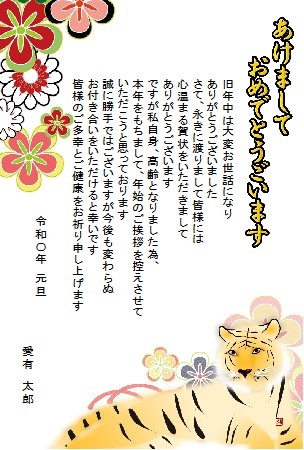 あけまして
おめでとうございます
旧年中は大変お世話になり
ありがとうございました
さて、永きに渡りまして皆様には
心温まる賀状をいただきまして
ありがとうございます
ですが私自身、高齢となりました為、
本年をもちまして、年始のご挨拶を控えさせて
いただこうと思っております
誠に勝手ではございますが今後も変わらぬ
お付き合いをいただけると幸いです
皆様のご多幸とご健康をお祈り申し上げます
令和〇年 元旦
愛有 太郎